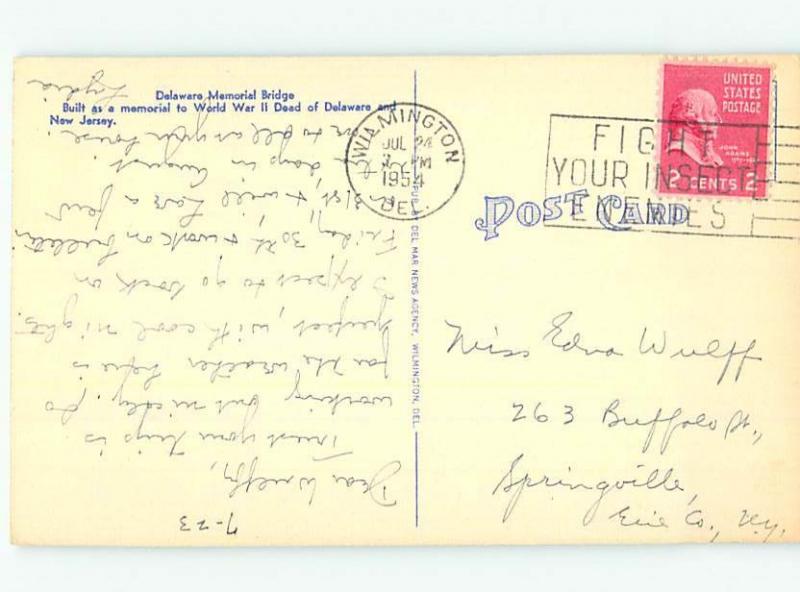 Delaware Memorial Bridge
Built as a memorial to World War II Dead of Delaware and
New Jersey.
WILMINGTON
JUL 24
PM
1954
DEL.
FIGHT
YOUR INSECT
ENEMIES
UNITED
STATES
POSTAGE
JOHN
ADAMS
2 CENTS 2
POST CARD
PUB. BY DEL MAR NEWS AGENCY, WILMINGTON, DEL.
Miss Edna Wulff
263 Buffalo St.,
Springville,
Erie Co., N.Y.
7-23
Dear Wulffy,
Trust your trip is
working out nicely. So
far the weather here is
perfect, with cool nights.
I expect to go back on
Friday, 30th & work on bulletin
31st, & will have a few
days in August
to at your house.
Lydia